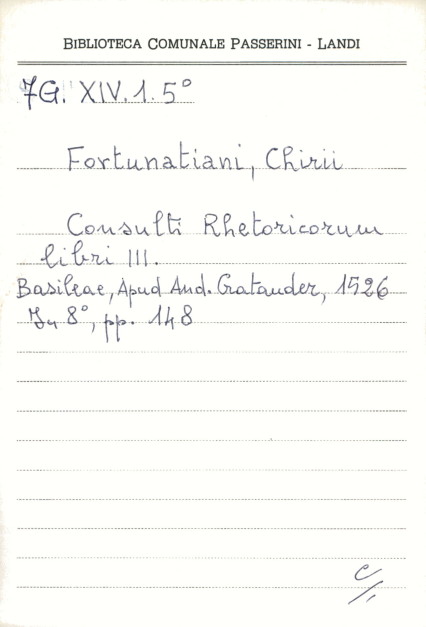 BIBLIOTECA COMUNALE PASSERINI - LANDI
7G. XIV. 1. 5°
Fortunatiani, Chirii
Consulti Rhetoricorum
libri III.
Basileae, Apud And. Cratander, 1526
In 8°, pp. 148